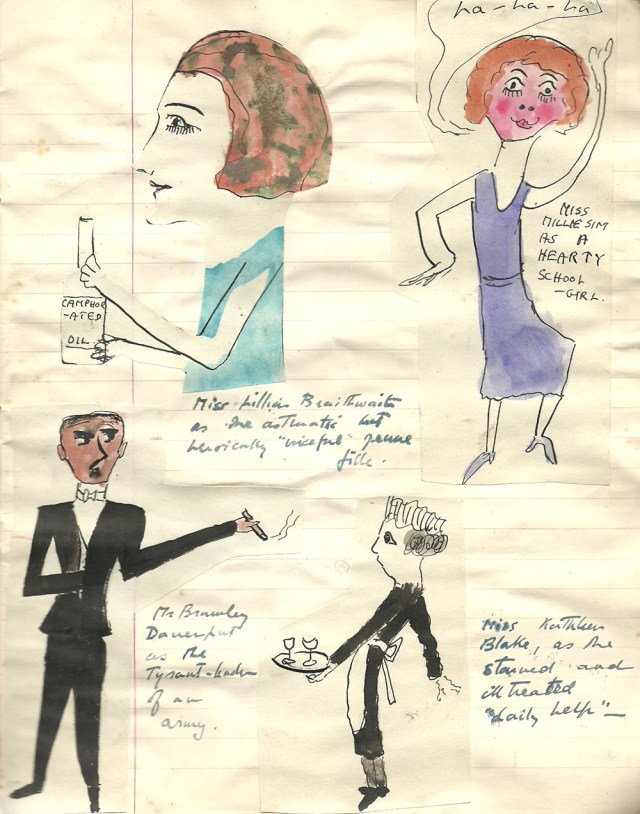 ha-ha-ha
MISS
MILLIE SIM
AS A
HEARTY
SCHOOL
-GIRL.
CAMPHOR
-ATED
OIL.
Miss Lillian Braithwaite
as the asthmatic but
heroically "voiceful" jeune
fille.
Mr Bramley
Davenport
as the
Tyrant-leader
of an
army.
Miss Kathleen
Blake, as the
starved and
ill treated
"daily help"—